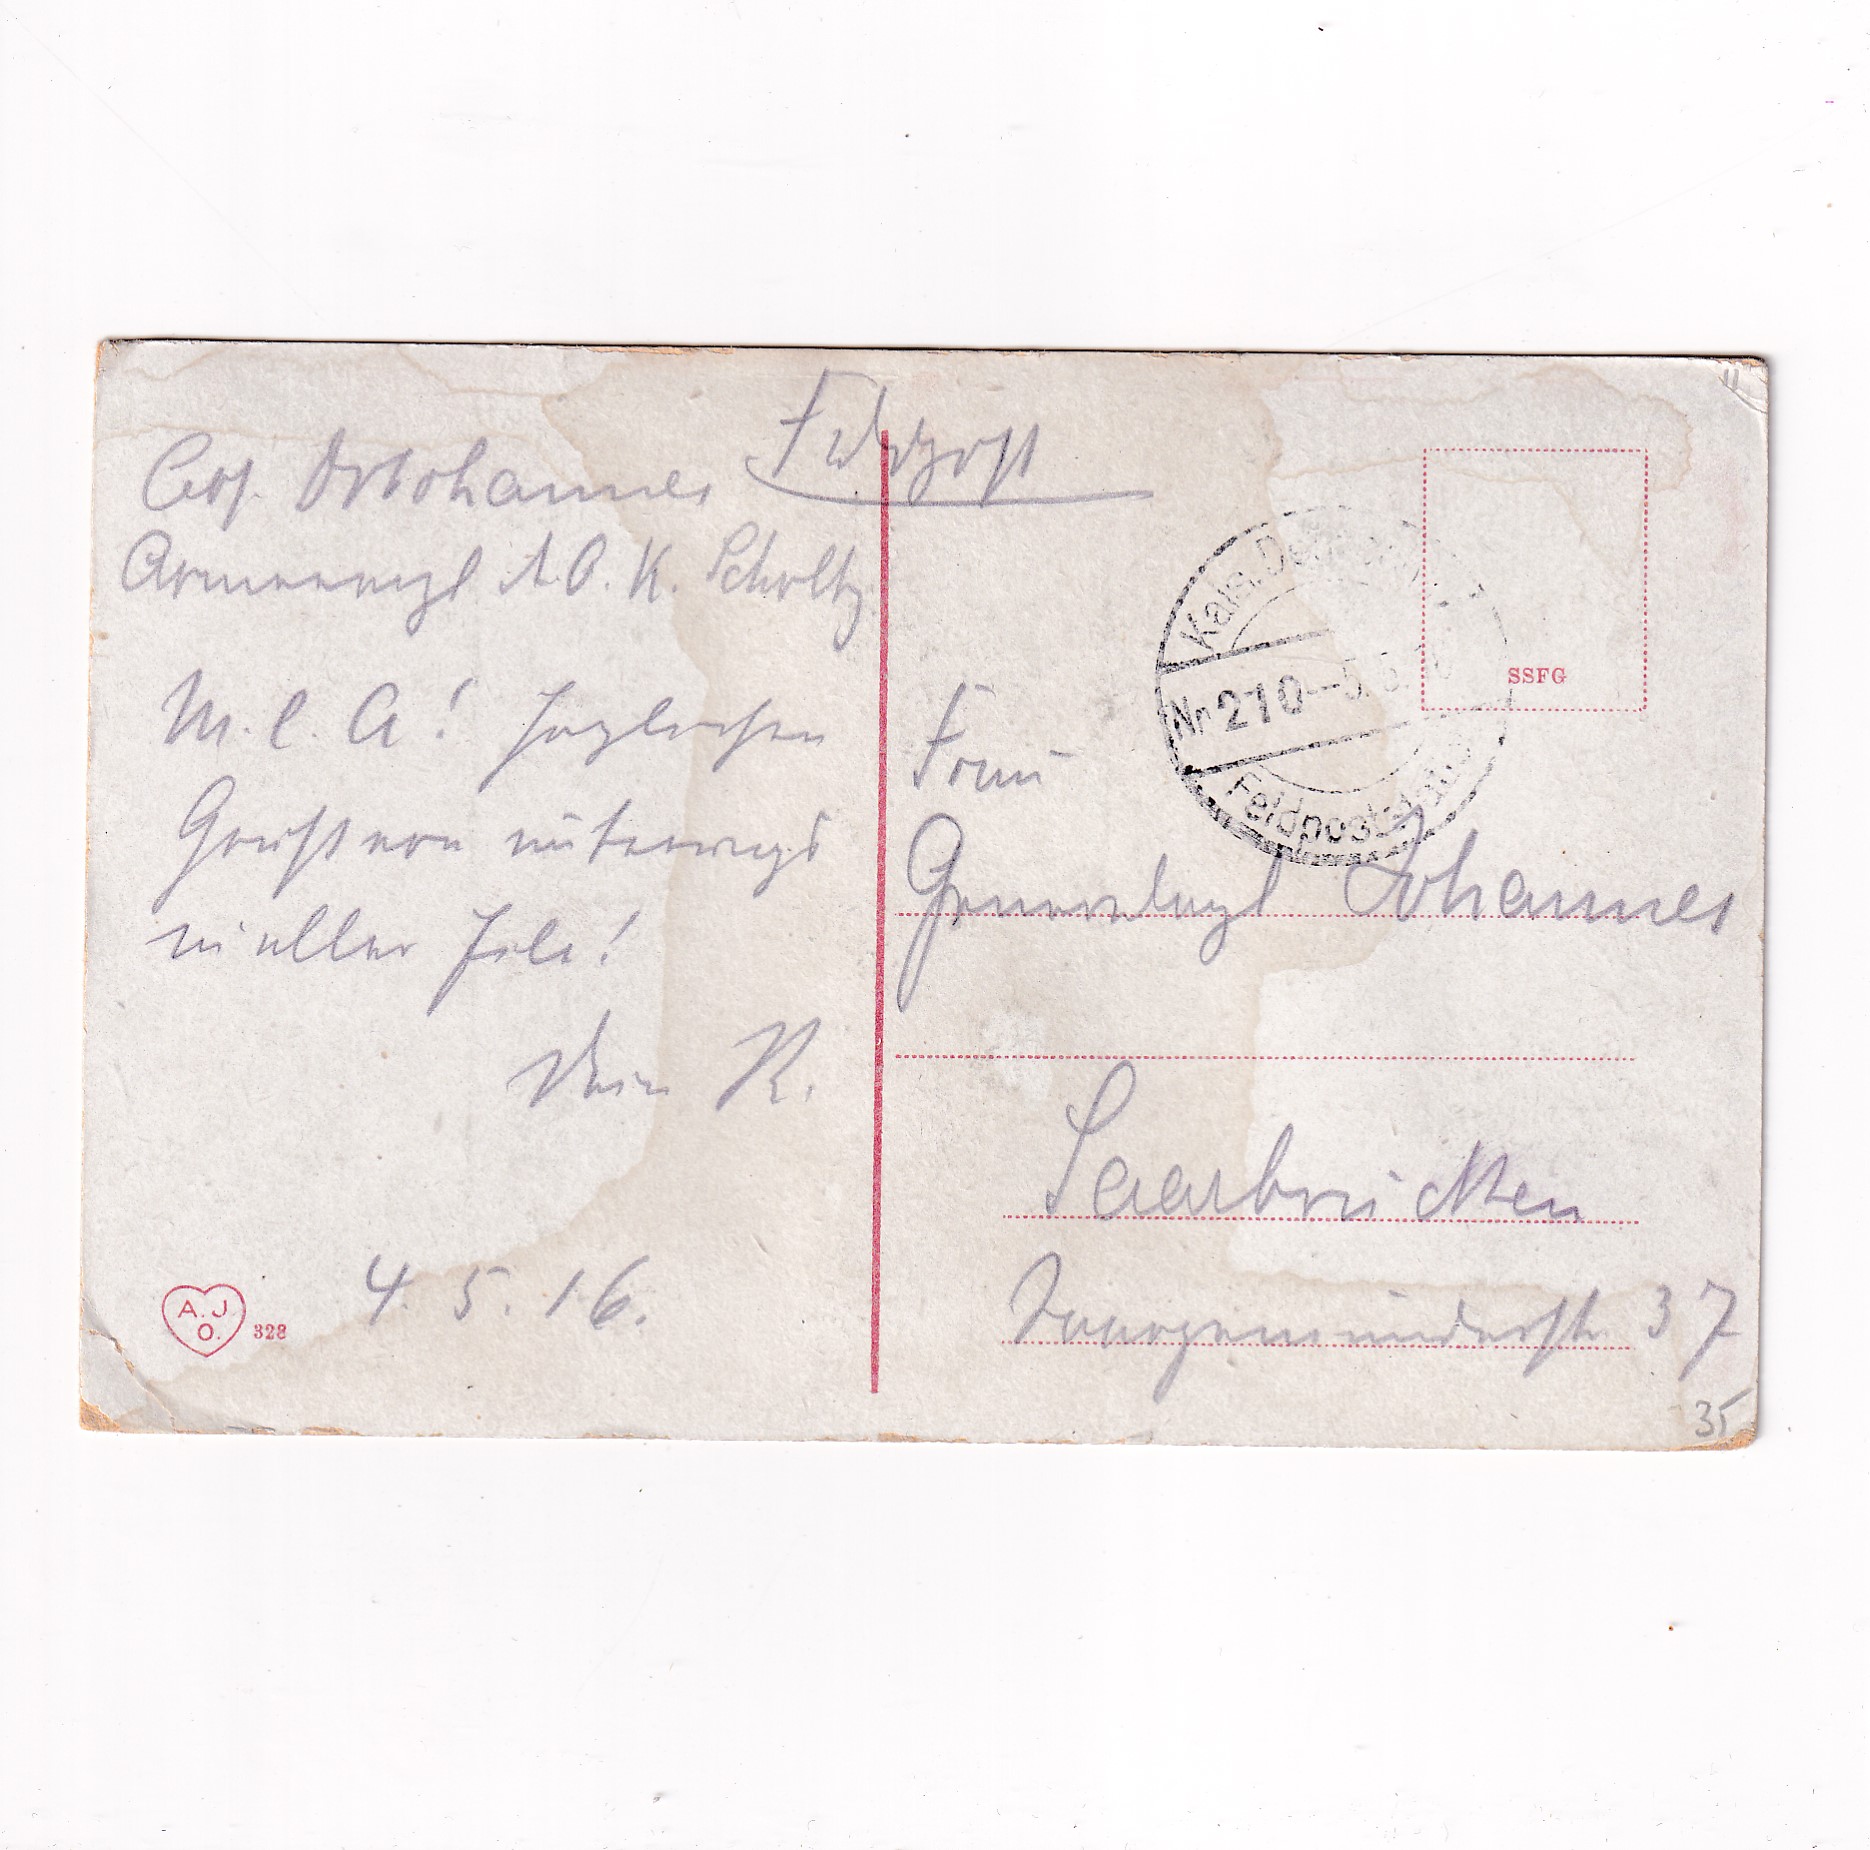 Feldpost
Abs. Dr Johannes
Armeearzt A. O. K. Scholtz
M. l. A! Herzlichen
Gruß von unterwegs
in aller Eile!
Dein R.
4. 5. 16.
A. J
O. 328
Kais. Deutsche
Nr 210 -5.5.16
Feldpoststation
SSFG
Frau
Generalarzt Johannes
Saarbrücken
Saargemünderstr 37
35